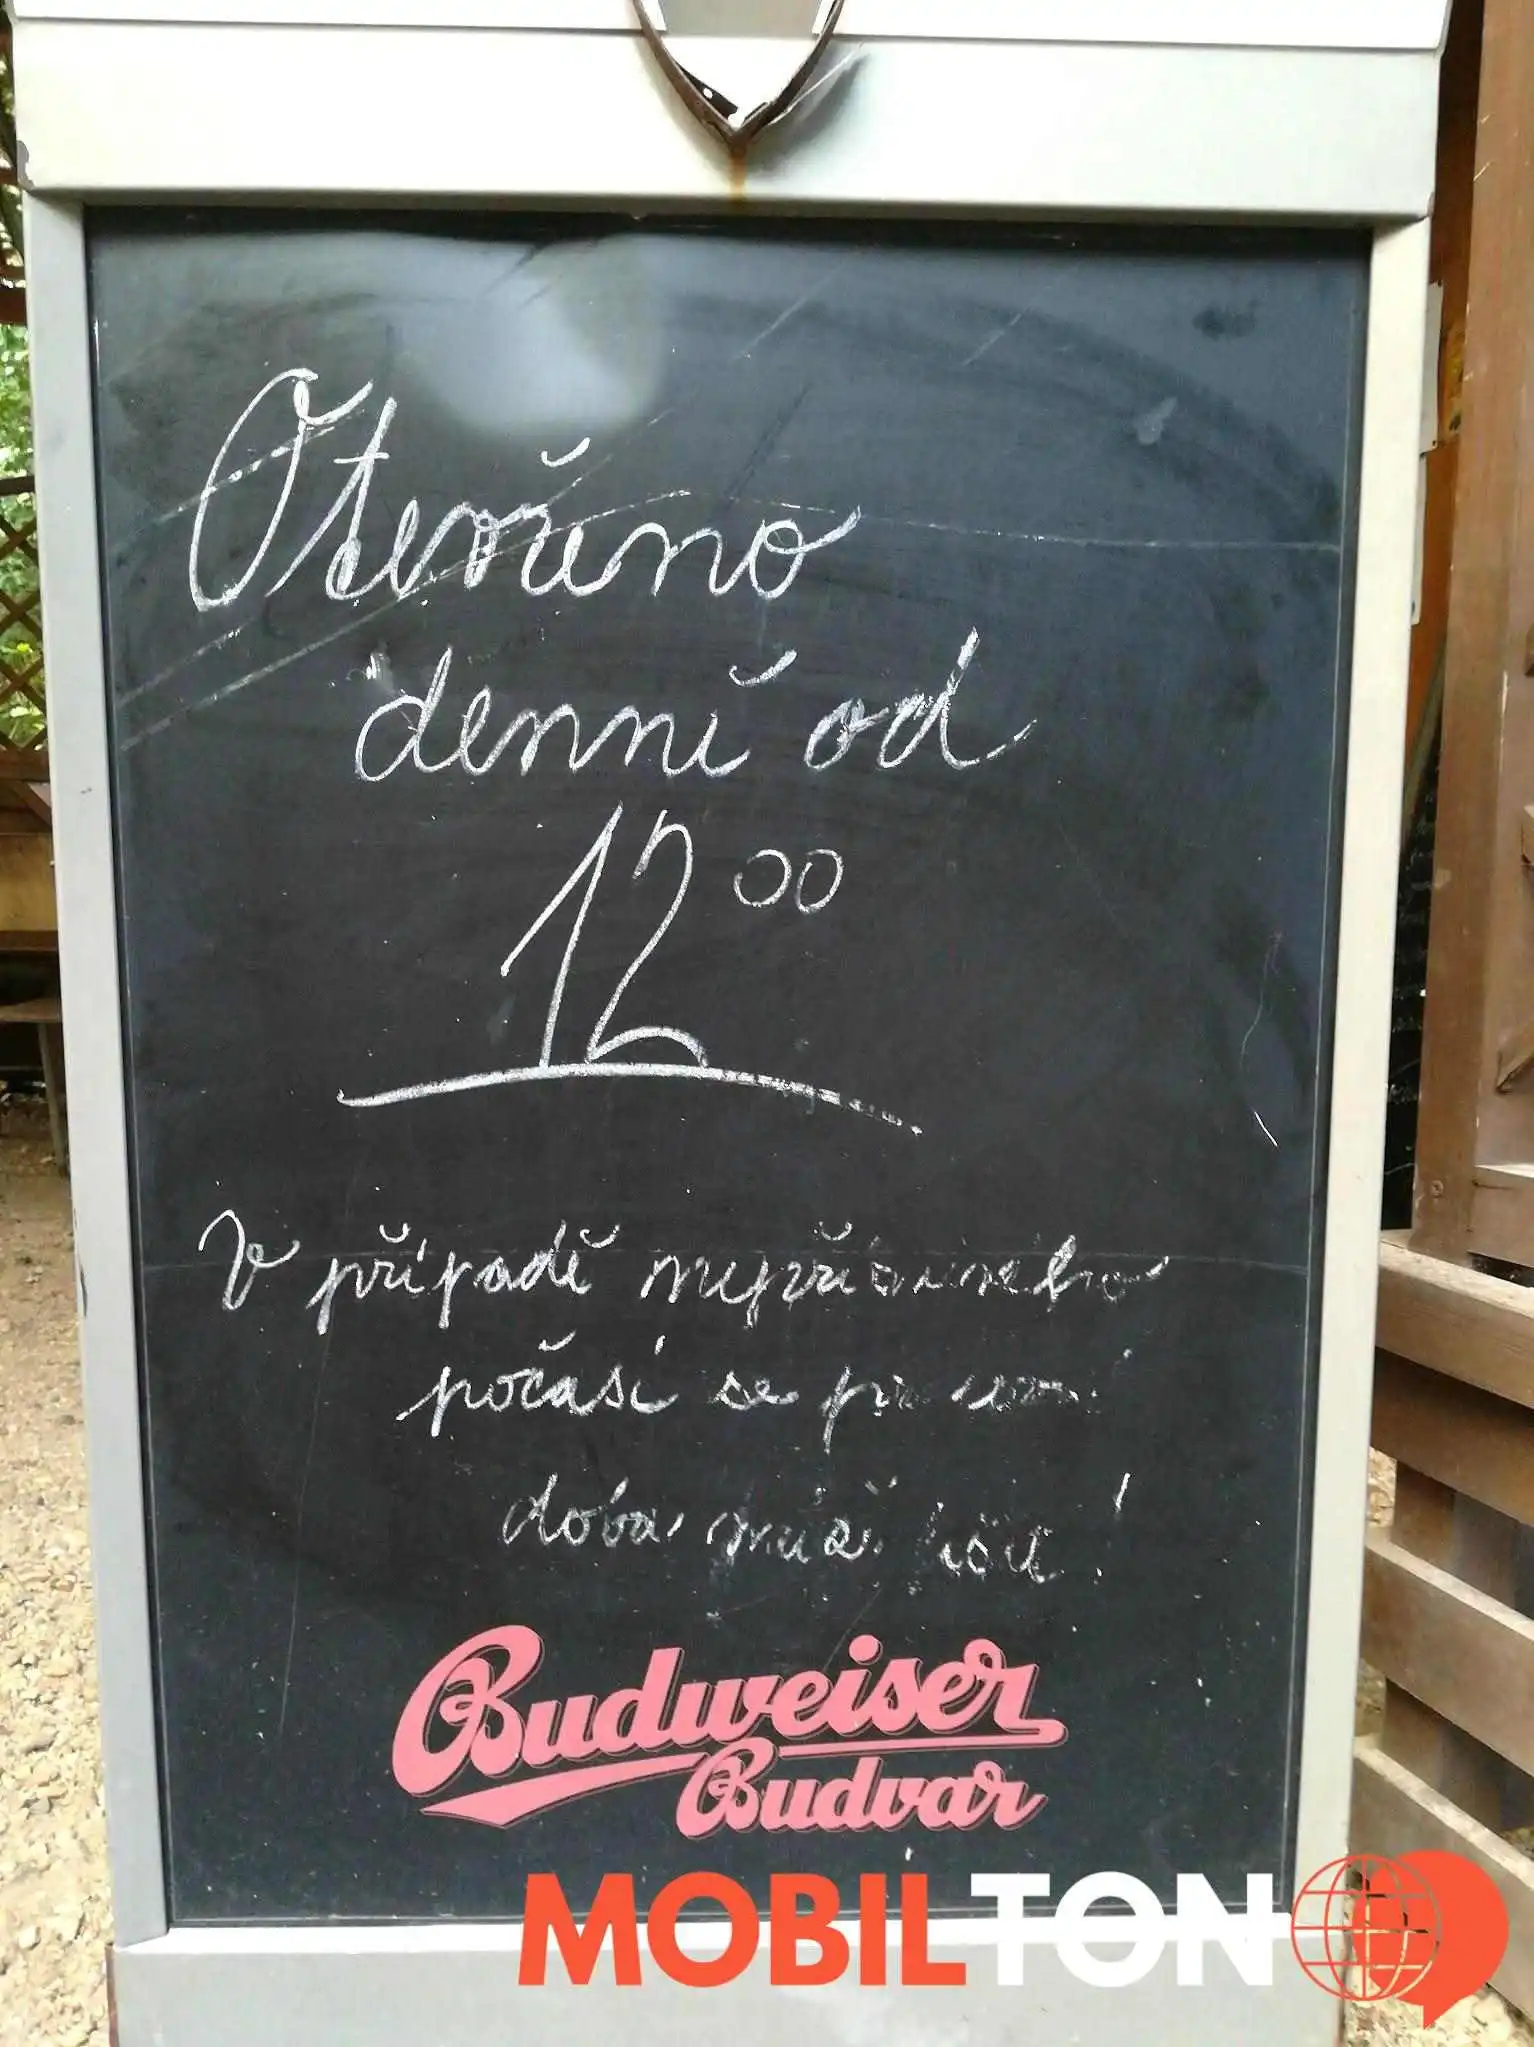 Otevřeno
denně od
12⁰⁰
V případě nepříznivého
počasí se provozní
doba může lišit!
Budweiser
Budvar
MOBILTON